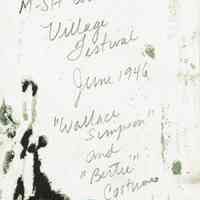 Village
Festival
June 1946
"Wallace
Simpson"
and
"Bertie"
Costumes